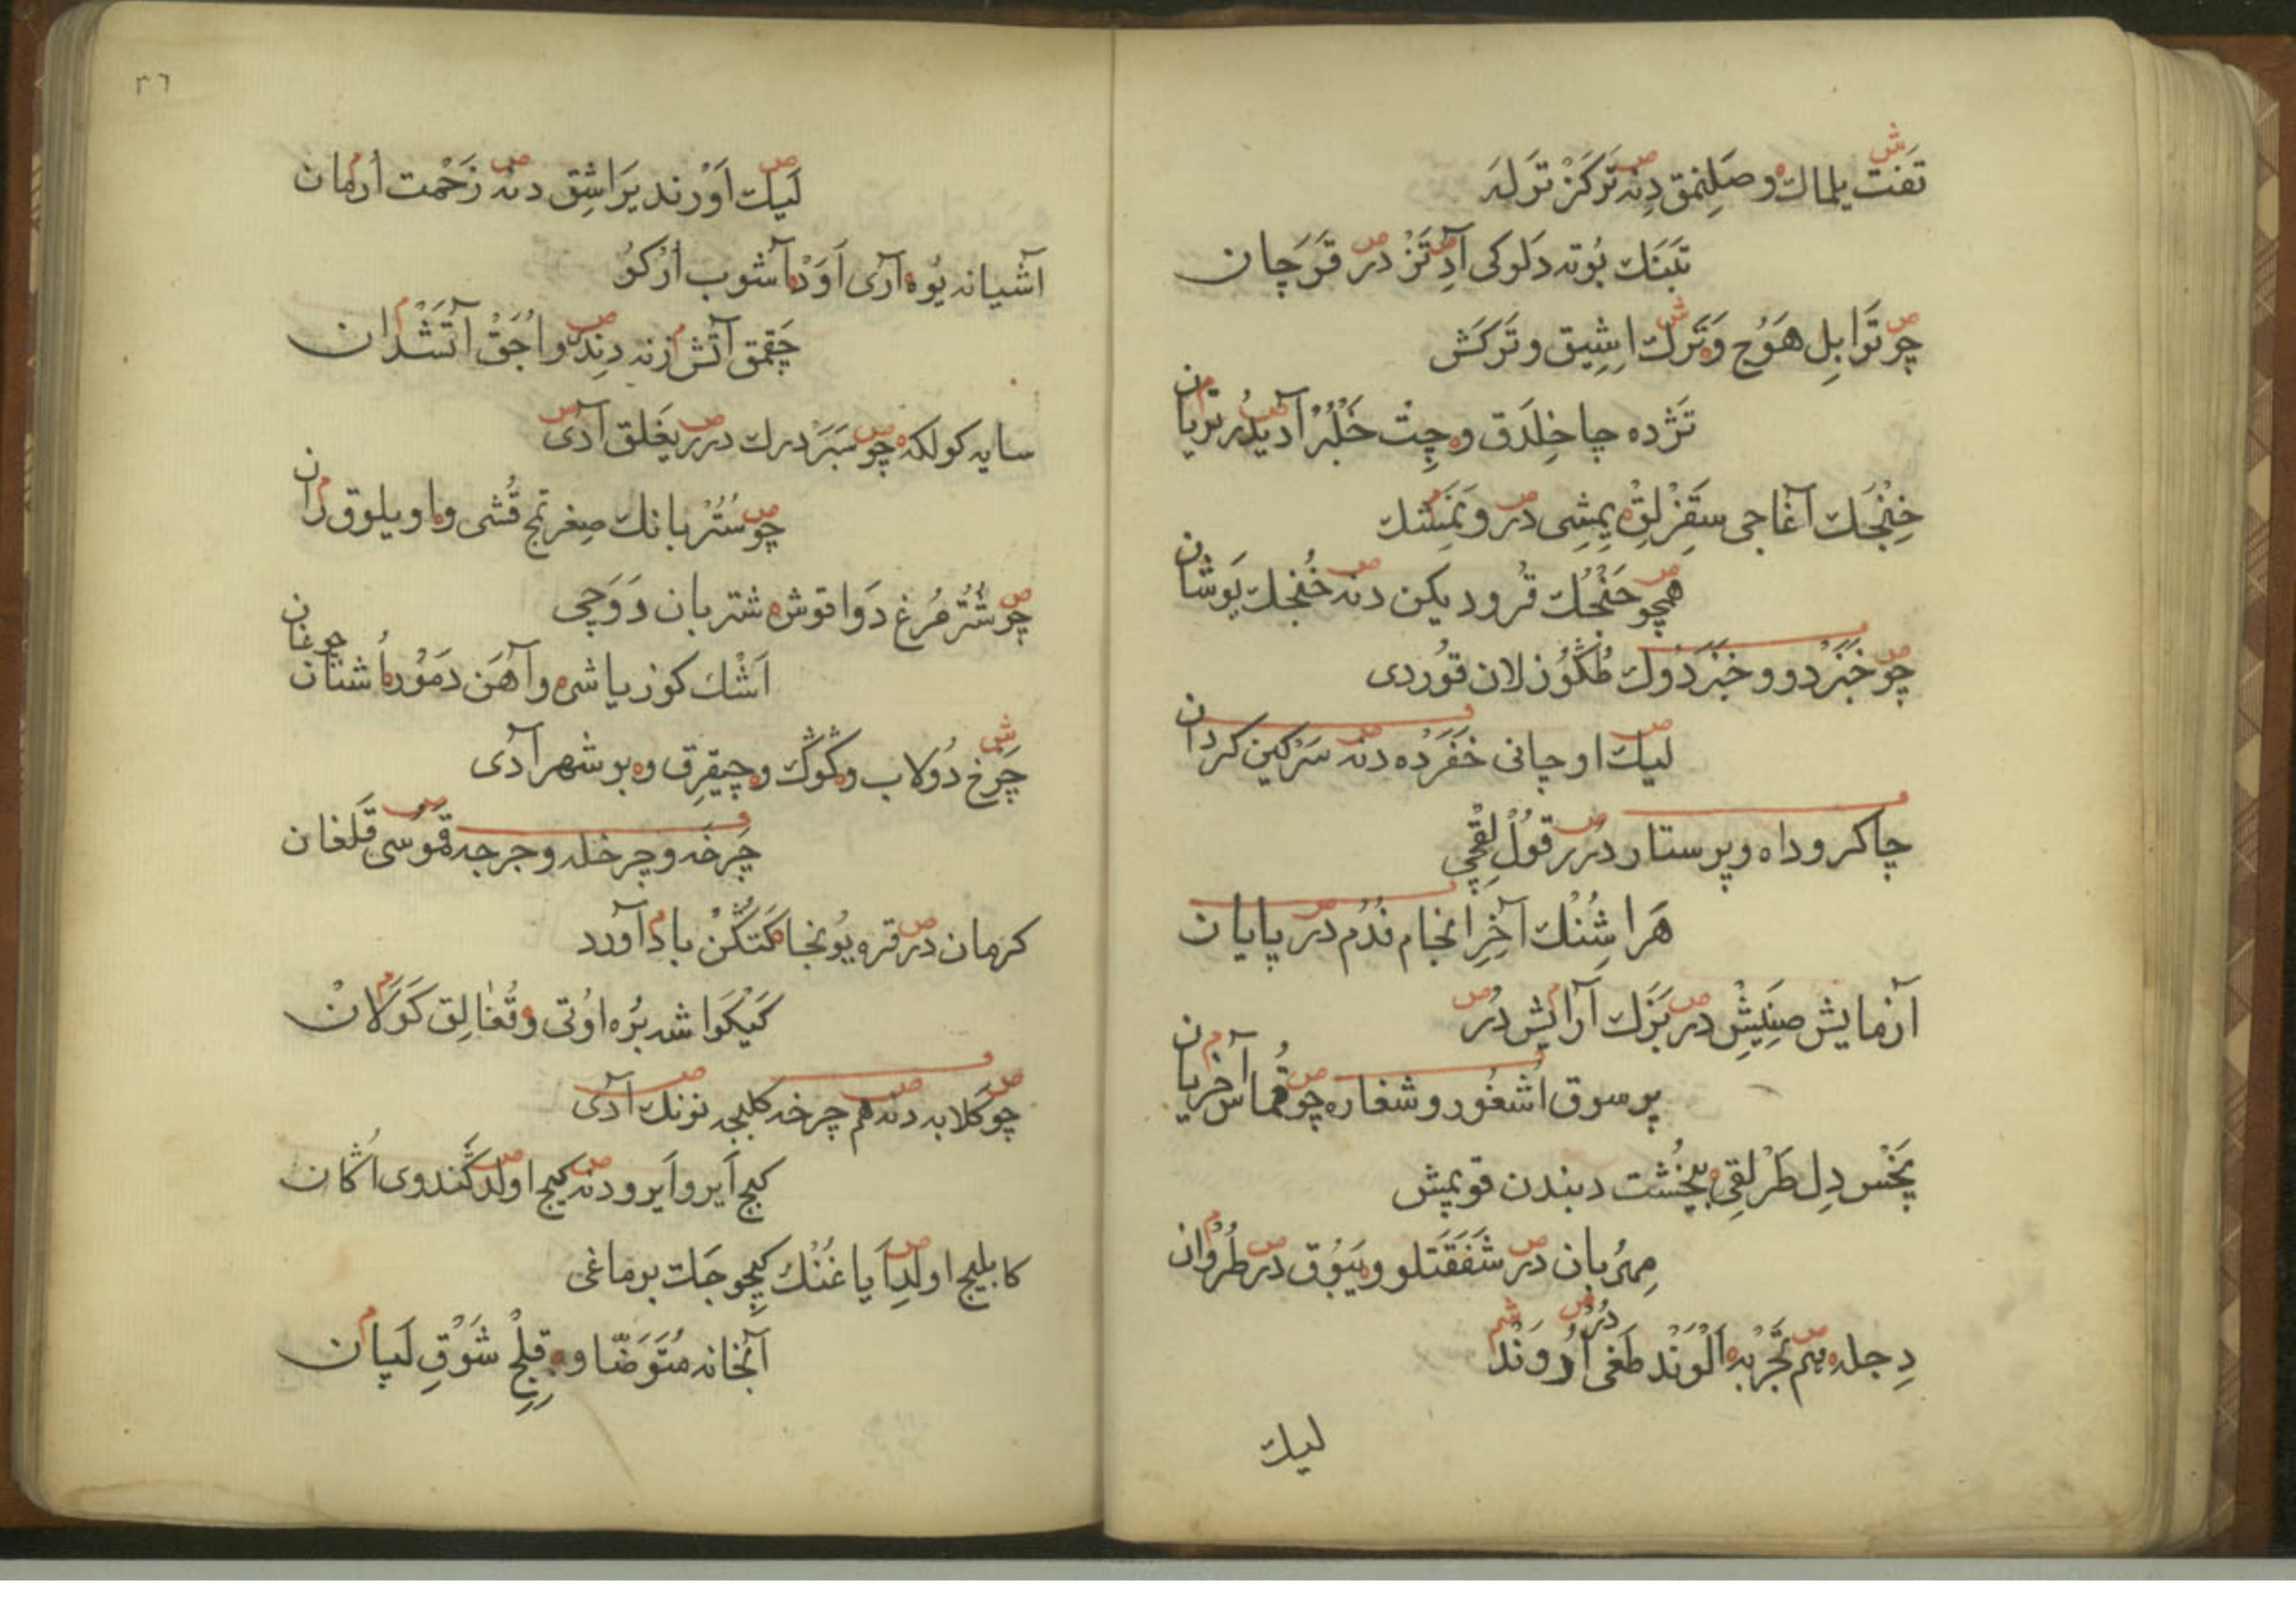 تفت يلمك و صلنمق دنه تركز ترله
تبنك بوته دلوكى آد تز در قرچان
چو ترا بل هوج و ترك اشيق و تركش
تژده چا خلدق و چت خلبر آديدر تريان
خنجك آغاجى سقز لق يمشى در و نمشك
همچو خنجك قرو ديكن دنه خنجك يوشان
چو خبزدو و خبزدوك طكوز لان قوردى
ليك اوچانى خفرده دنه سركين كردان
چاكر و داه و پرستار درر قول لقچى
هر اشنك آخر انجام فدم در پايان
آزمايش صنيش در بزك آرايش در
پرسوق اشغور و شغاره چو قماش آخريان
پخس دل طرلقى پيخشت دبندن قوپمش
مهربان در شفقتلو و يبوق در طروان
دجله يم تجربه الوند طغى اروند درر
ليك
٣٦
ليك اورند يراشق دنه زحمت ارمان
آشيانه يوه آرى اود آشوب اركو
چقمق آتش زنه دند و اجق آتشدان
سايه كولكه چو سبزدرك درر يغلق آدى
چو ستر بانك صغرتمج قشى و اويلوق ران
چو شتر مرغ دوا قوش شتربان دوچى
اشك كوز ياشى و آهن دمور اشنان چوغان
چرخ دولاب و كوك و چيقرق و بو شهر آدى
چرخه و چرخله و جرجه قموسى قلغان
كرمان در قره يونجا كتكن باد آورد
كيكوا شه بره اوتى و قغالق كولان
چو كلابه دنه هم چرخه كليجه نونك آدى
كيج اير و ايرو دنه كيج اولد كندوى اكان
كابليج اولد اياغنك كچو جك بوماغى
آبخانه متوضا و قلج شوق لپان